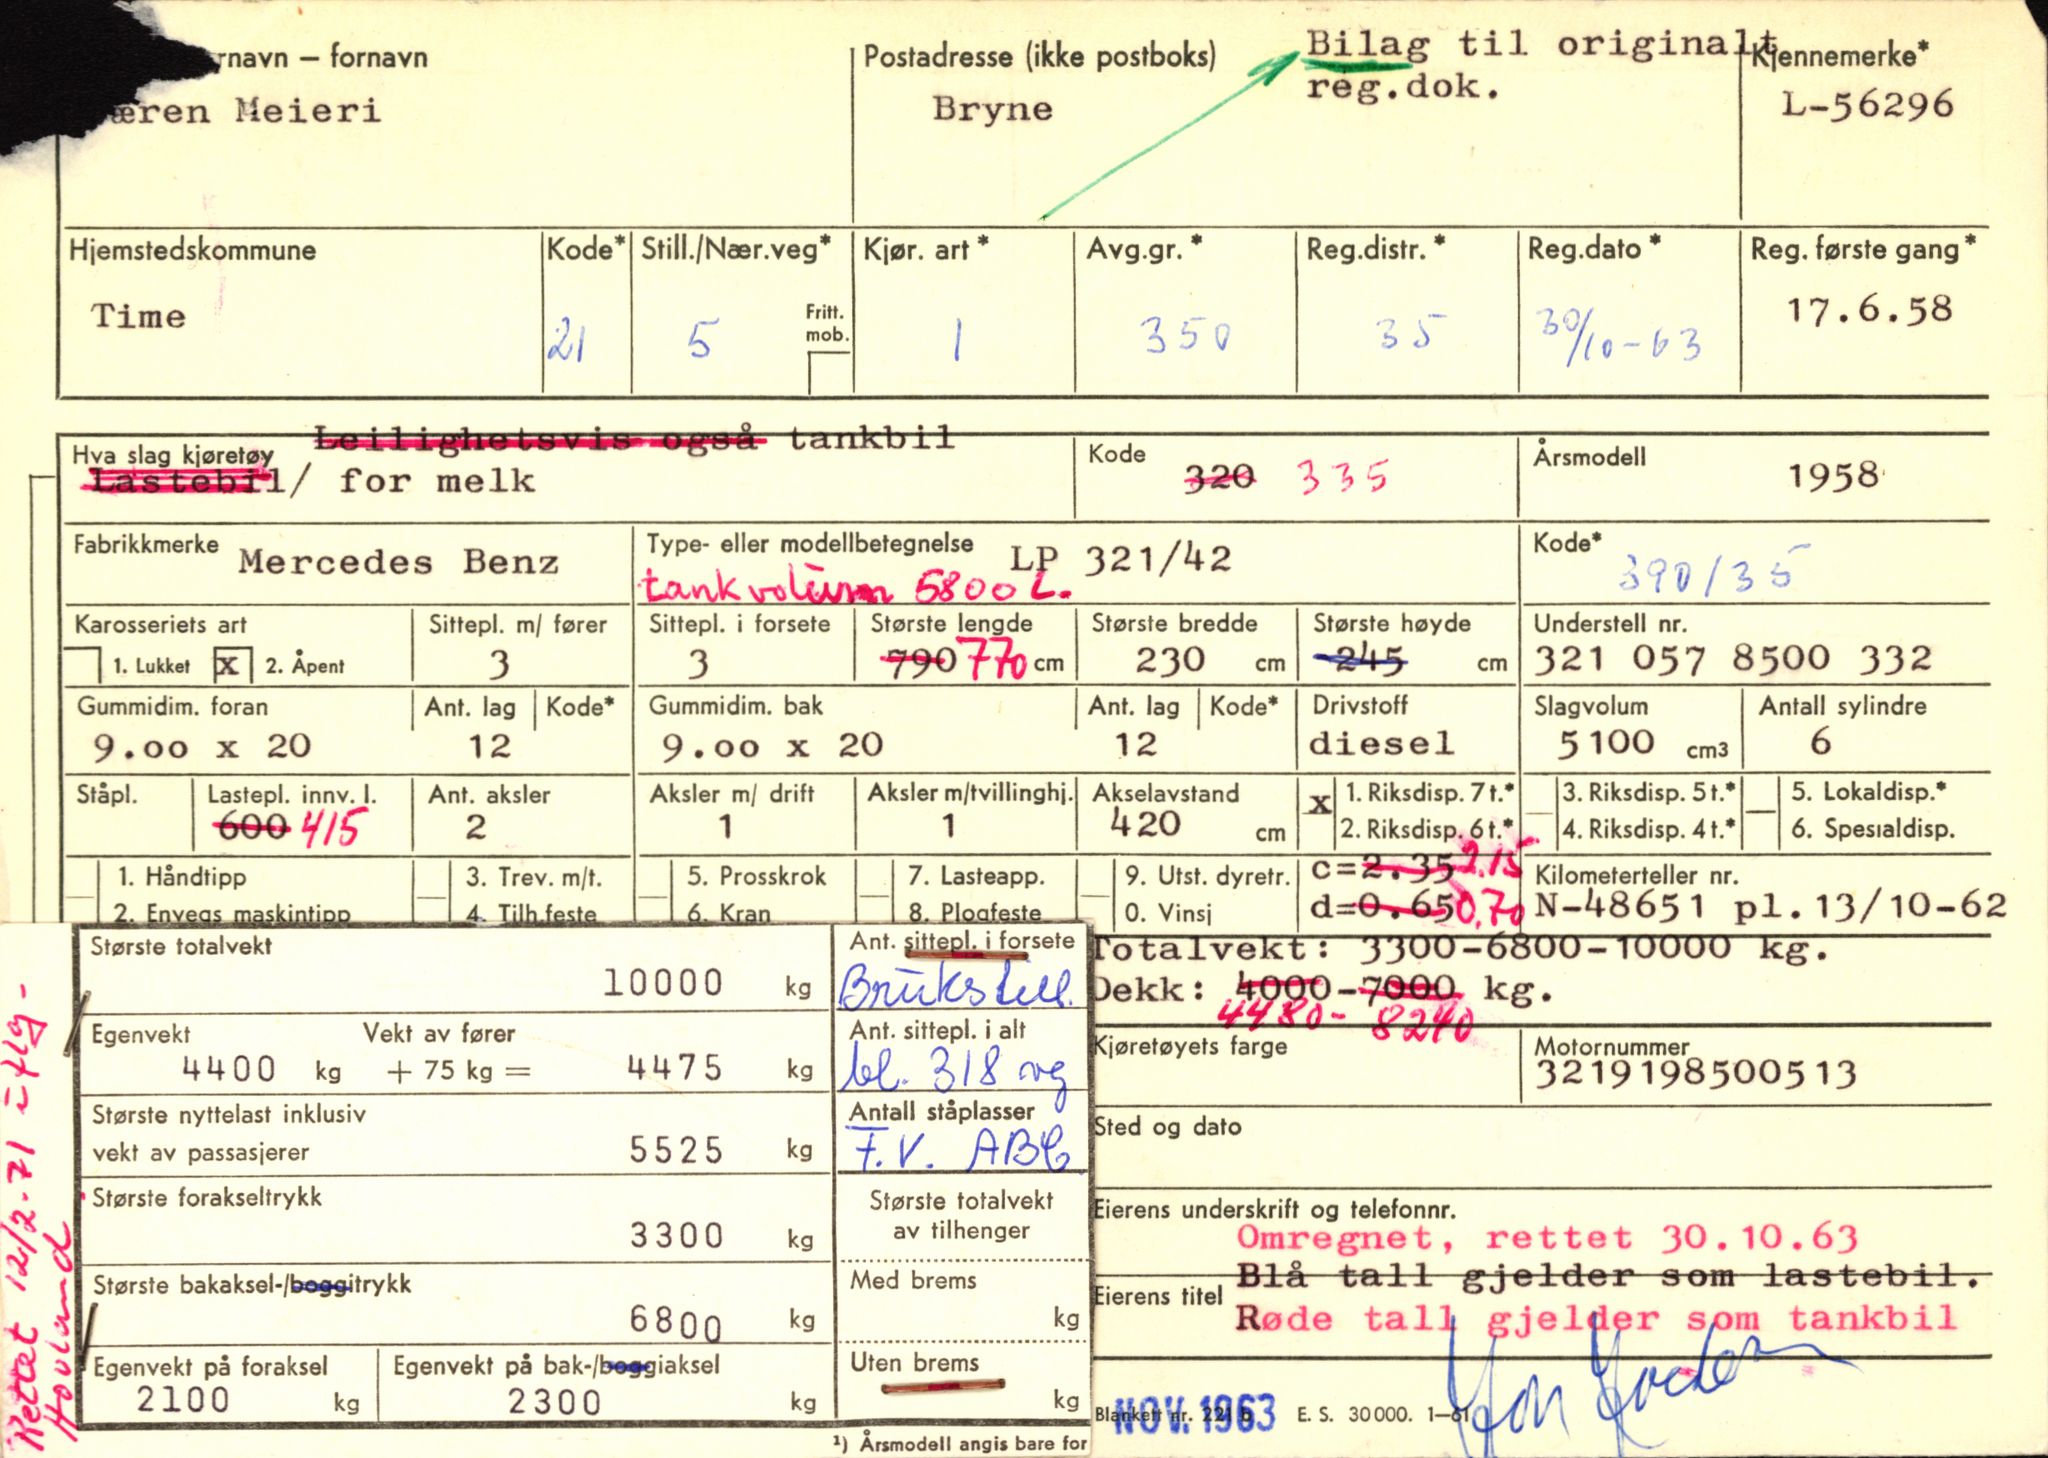 rnavn – fornavn
æren Meieri
Postadresse (ikke postboks)
Bryne
Bilag til originalt
reg.dok.
Kjennemerke*
L-56296
Hjemstedskommune
Time
Kode*
21
Still./Nær.veg*
5
Fritt. mob.
Kjør. art*
1
Avg.gr.*
350
Reg.distr.*
35
Reg.dato*
30/10-63
Reg. første gang*
17.6.58
Hva slag kjøretøy
Leilighetsvis også tankbil
Lastebil/ for melk
Kode
320 335
Årsmodell
1958
Fabrikkmerke
Mercedes Benz
Type- eller modellbetegnelse
LP 321/42
tankvolum 5800 L.
Kode*
390/35
Karosseriets art
1. Lukket x 2. Åpent
Sittepl. m/ fører
3
Sittepl. i forsete
3
Største lengde
790 770 cm
Største bredde
230 cm
Største høyde
245 cm
Understell nr.
321 057 8500 332
Gummidim. foran
9.00 x 20
Ant. lag
12
Kode*
Gummidim. bak
9.00 x 20
Ant. lag
12
Kode*
Drivstoff
diesel
Slagvolum
5100 cm3
Antall sylindre
6
Ståpl.
Lastepl. innv. l.
600 415
Ant. aksler
2
Aksler m/ drift
1
Aksler m/tvillinghj.
1
Akselavstand
420 cm
x 1. Riksdisp. 7 t.*
2. Riksdisp. 6 t.*
3. Riksdisp. 5 t.*
4. Riksdisp. 4 t.*
5. Lokaldisp.*
6. Spesialdisp.
1. Håndtipp
2. Envegs maskintipp
3. Trev. m/t.
4. Tilh.feste
5. Prosskrok
6. Kran
7. Lasteapp.
8. Plogfeste
9. Utst. dyretr.
0. Vinsj
c=2.35 2.15
d=0.65 0.70
Kilometerteller nr.
N-48651 pl.13/10-62
Totalvekt: 3300-6800-10000 kg.
Dekk: 4000-7000 kg.
4480- 8240
Kjøretøyets farge
Motornummer
3219198500513
Sted og dato
Eierens underskrift og telefonnr.
Omregnet, rettet 30.10.63
Blå tall gjelder som lastebil.
Eierens titel
Røde tall gjelder som tankbil
Blankett nr. 221 b
NOV. 1963
E. S. 30 000. 1–61
Største totalvekt
10000 kg
Egenvekt
4400 kg
Vekt av fører
+ 75 kg = 4475 kg
Største nyttelast inklusiv
vekt av passasjerer
5525 kg
Største forakseltrykk
3300 kg
Største bakaksel-/boggitrykk
6800 kg
Egenvekt på foraksel
2100 kg
Egenvekt på bak-/boggiaksel
2300 kg
Ant. sittepl. i forsete
Brukstill.
Ant. sittepl. i alt
bl. 318 vg
Antall ståplasser
F.V.
Største totalvekt
av tilhenger
Med brems
kg
Uten brems
kg
¹) Årsmodell angis bare for
Rettet 12/2-71 i flg-
Hovland